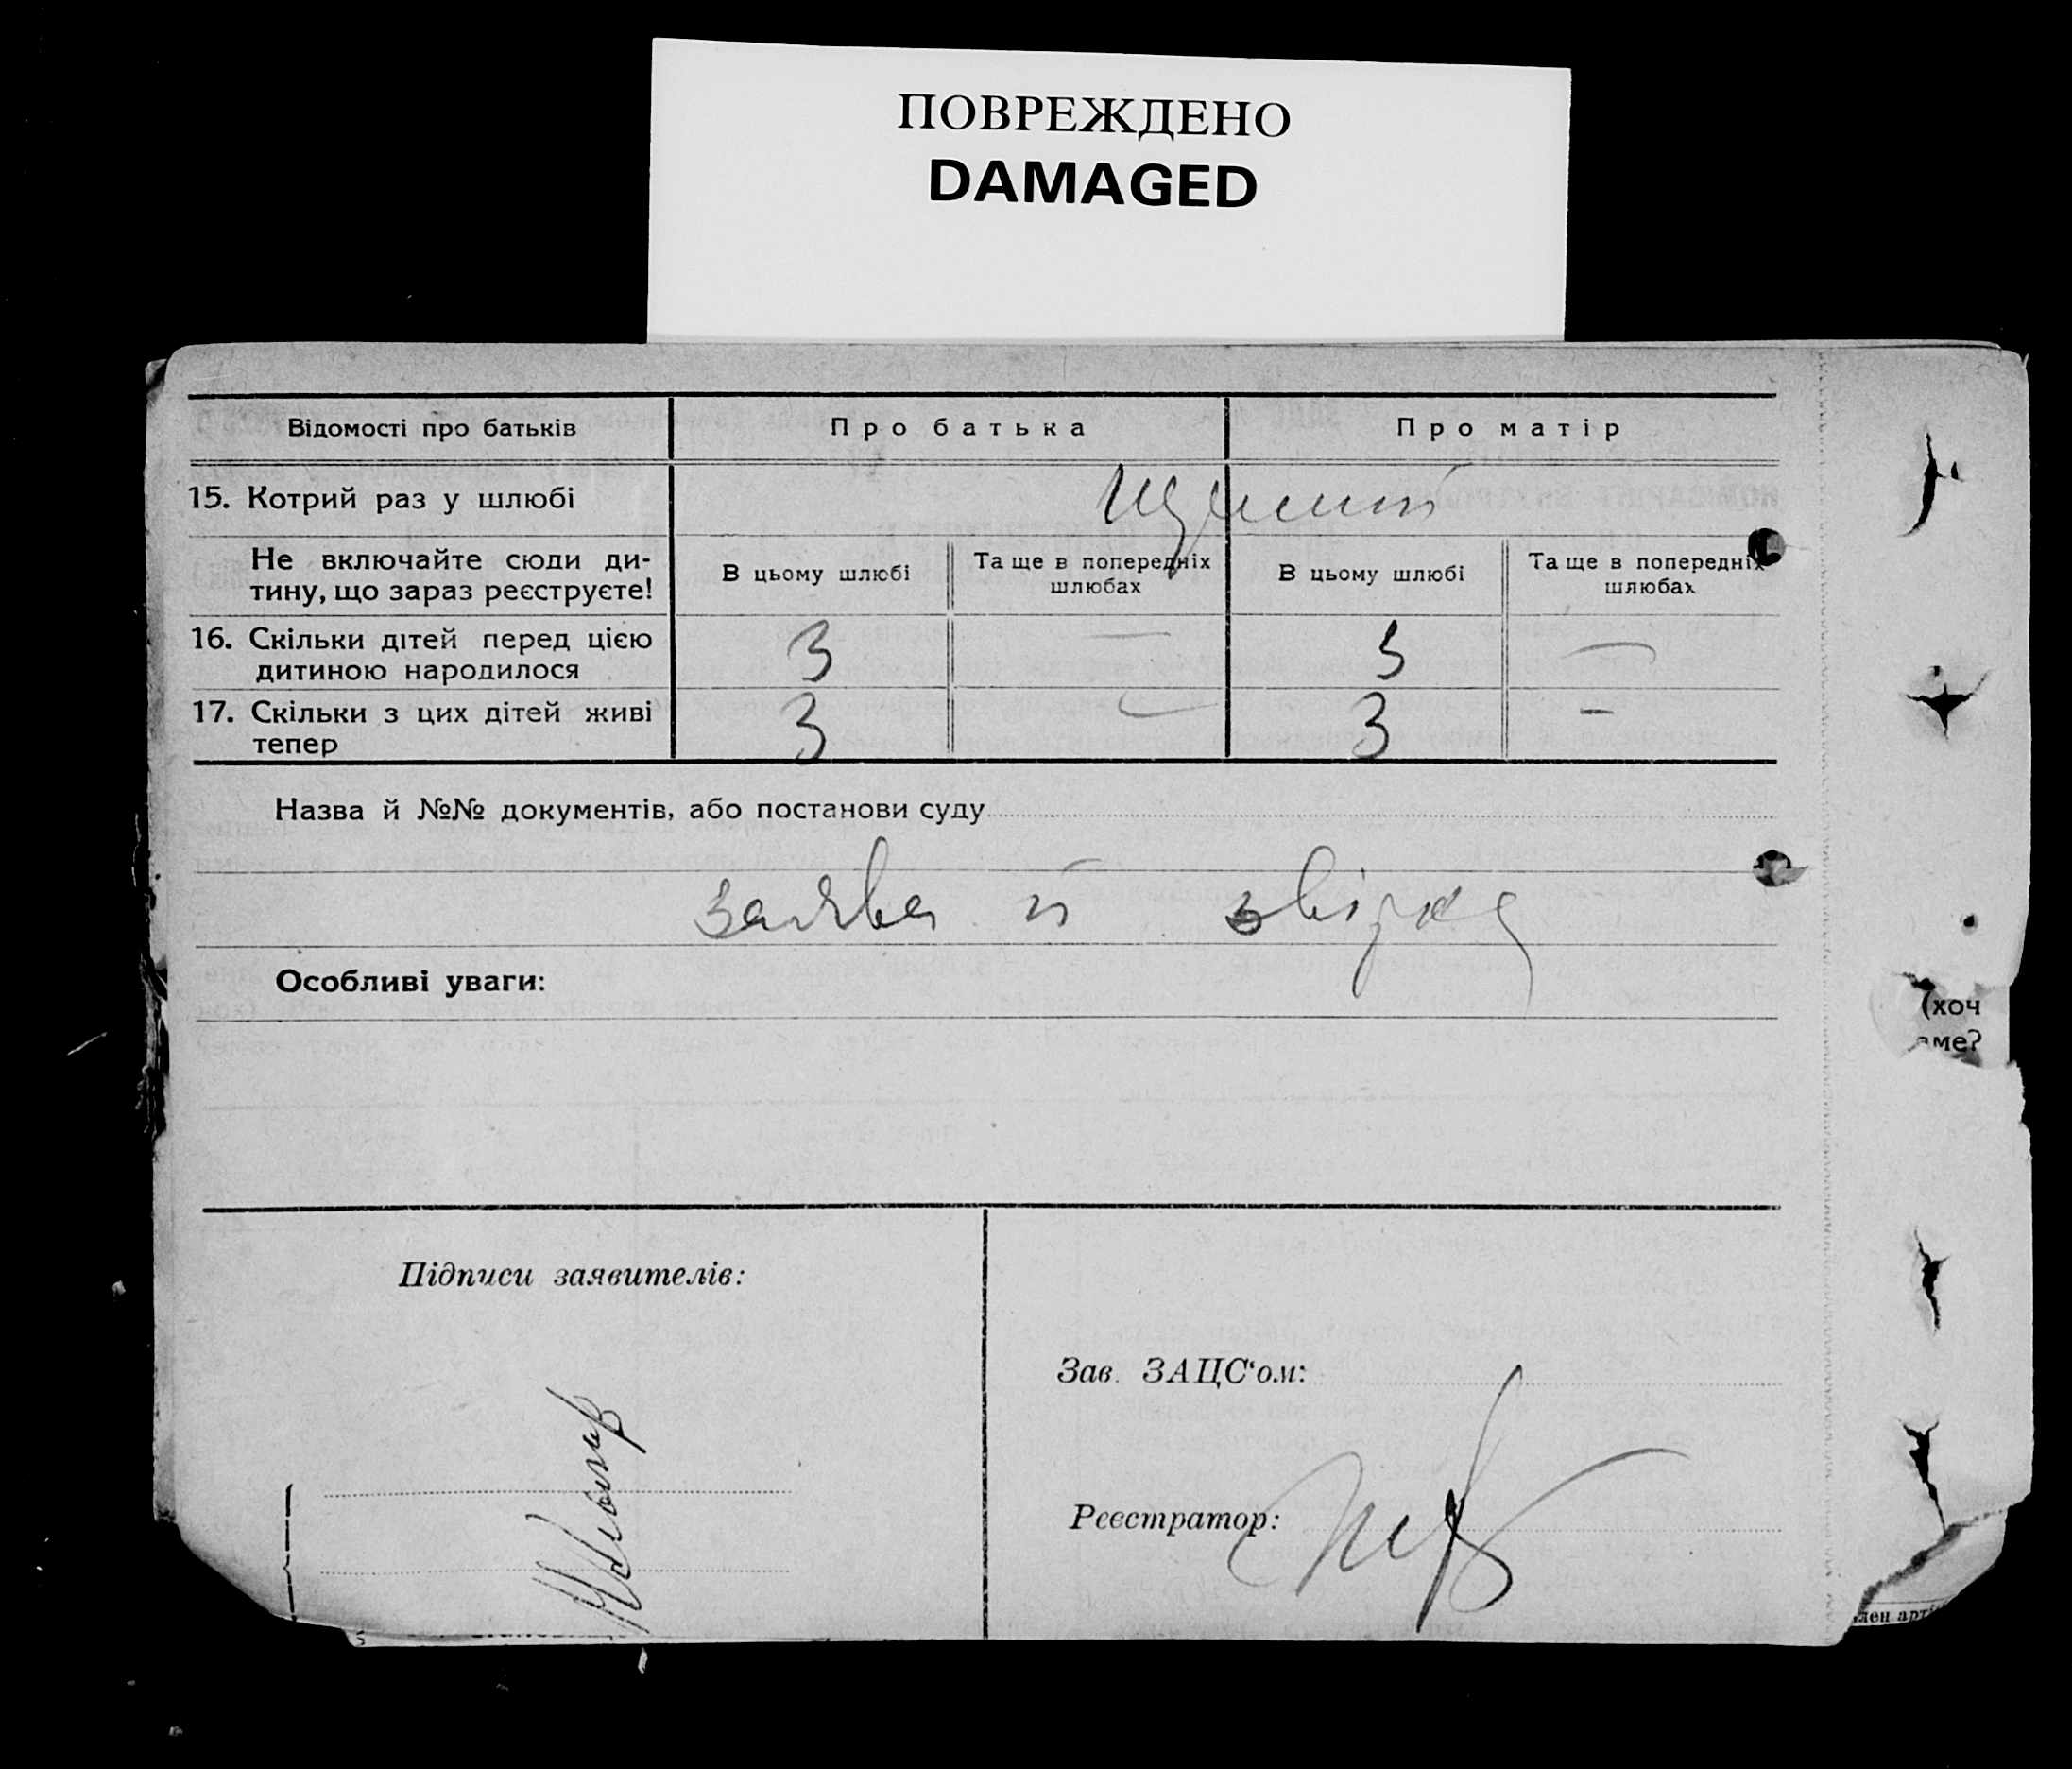 ПОВРЕЖДЕНО
DAMAGED
Відомості про батьків
Про батька
Про матір
15. Котрий раз у шлюбі
Не включайте сюди ди-
тину, що зараз реєструєте!
В цьому шлюбі
Та ще в попередніх
шлюбах
В цьому шлюбі
Та ще в попередніх
шлюбах
16. Скільки дітей перед цією
дитиною народилося
3 — 3 —
17. Скільки з цих дітей живі
тепер
3 — 3 -
Назва й №№ документів, або постанови суду
заява й
Особливі уваги:
(хоч
аме?
Підписи заявителів:
Зав. ЗАЦС‘ом:
Реєстратор: